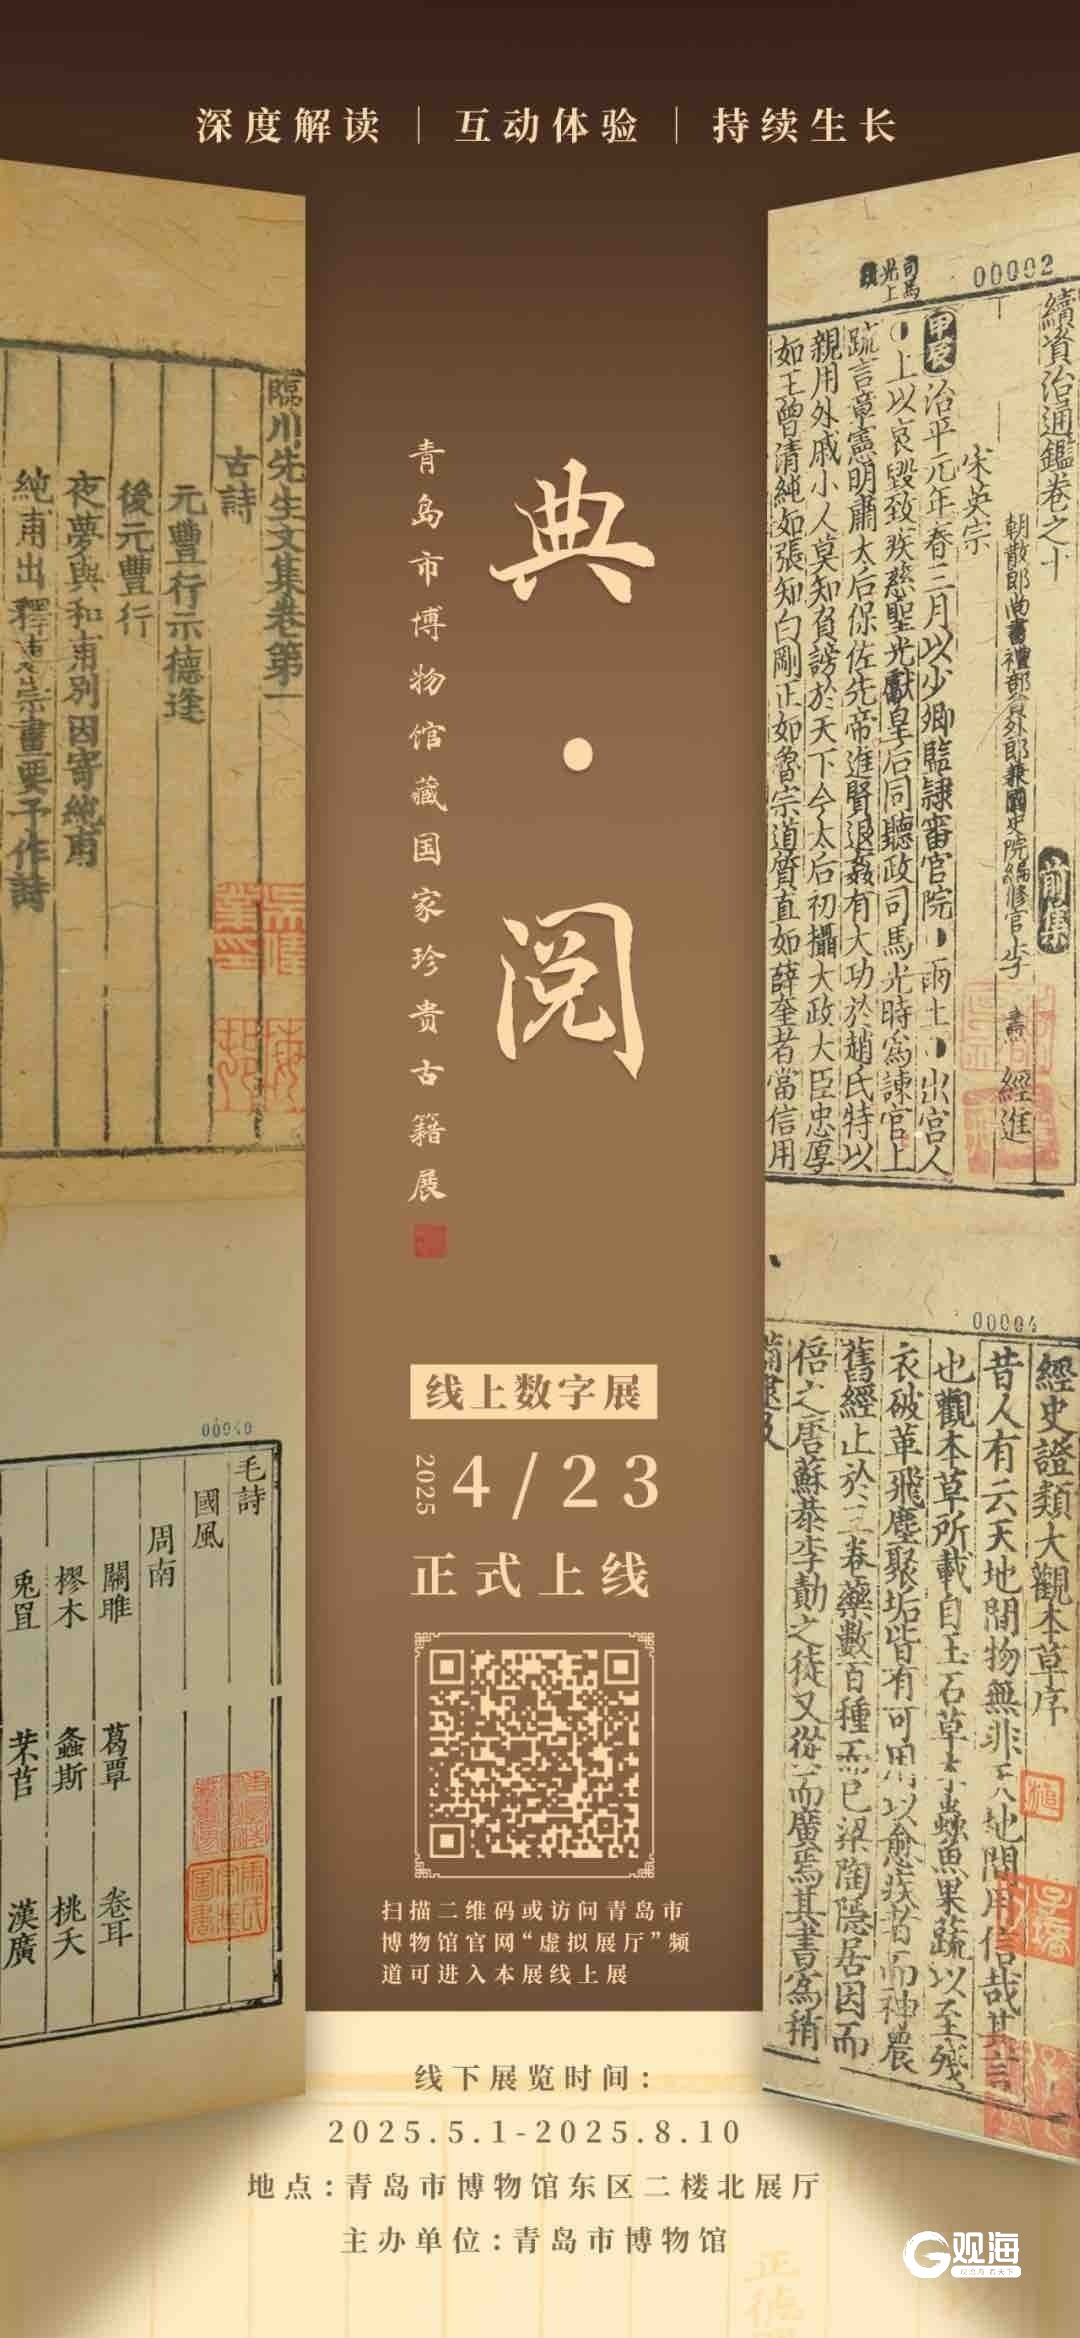 深度解读｜互动体验｜持续生长
典·阅
青岛市博物馆藏国家珍贵古籍展
臨川先生文集卷第一
古詩
元豐行示德逢
後元豐行
夜夢與和甫別因寄純甫
純甫出釋惠崇畫要予作詩
00002
司馬
光上
續資治通鑑卷之十
前集
朝散郎尚書禮部員外郎兼國史院編修官李 燾 經進
宋英宗
甲辰治平元年春三月以少卿監隷審官院雨土出宮人
上以哀毀致疾慈聖光獻皇后同聽政司馬光時為諫官上
疏言章憲明肅太后保佐先帝進賢退姦有大功於趙氏特以
親用外戚小人莫知負謗於天下今太后初攝大政大臣忠厚
如王曾清純如張知白剛正如魯宗道質直如薛奎者當信用
00040
毛詩
國風
周南
關雎 葛覃 卷耳
樛木 螽斯 桃夭
兎罝 芣苢 漢廣
00004
經史證類大觀本草序
昔人有云天地間物無非天地間用信哉其言
也觀本草所載自玉石草木蟲魚果蔬以至殘
衣破革飛塵聚垢皆有可用以愈疾者而神農
舊經止於三卷藥數百種而已梁陶隱居因而
倍之唐蘇恭李勣之徒又從而廣焉其書為稍
线上数字展
2025
4/23
正式上线
扫描二维码或访问青岛市
博物馆官网“虚拟展厅”频
道可进入本展线上展
线下展览时间：
2025.5.1-2025.8.10
地点：青岛市博物馆东区二楼北展厅
主办单位：青岛市博物馆
正德
观海